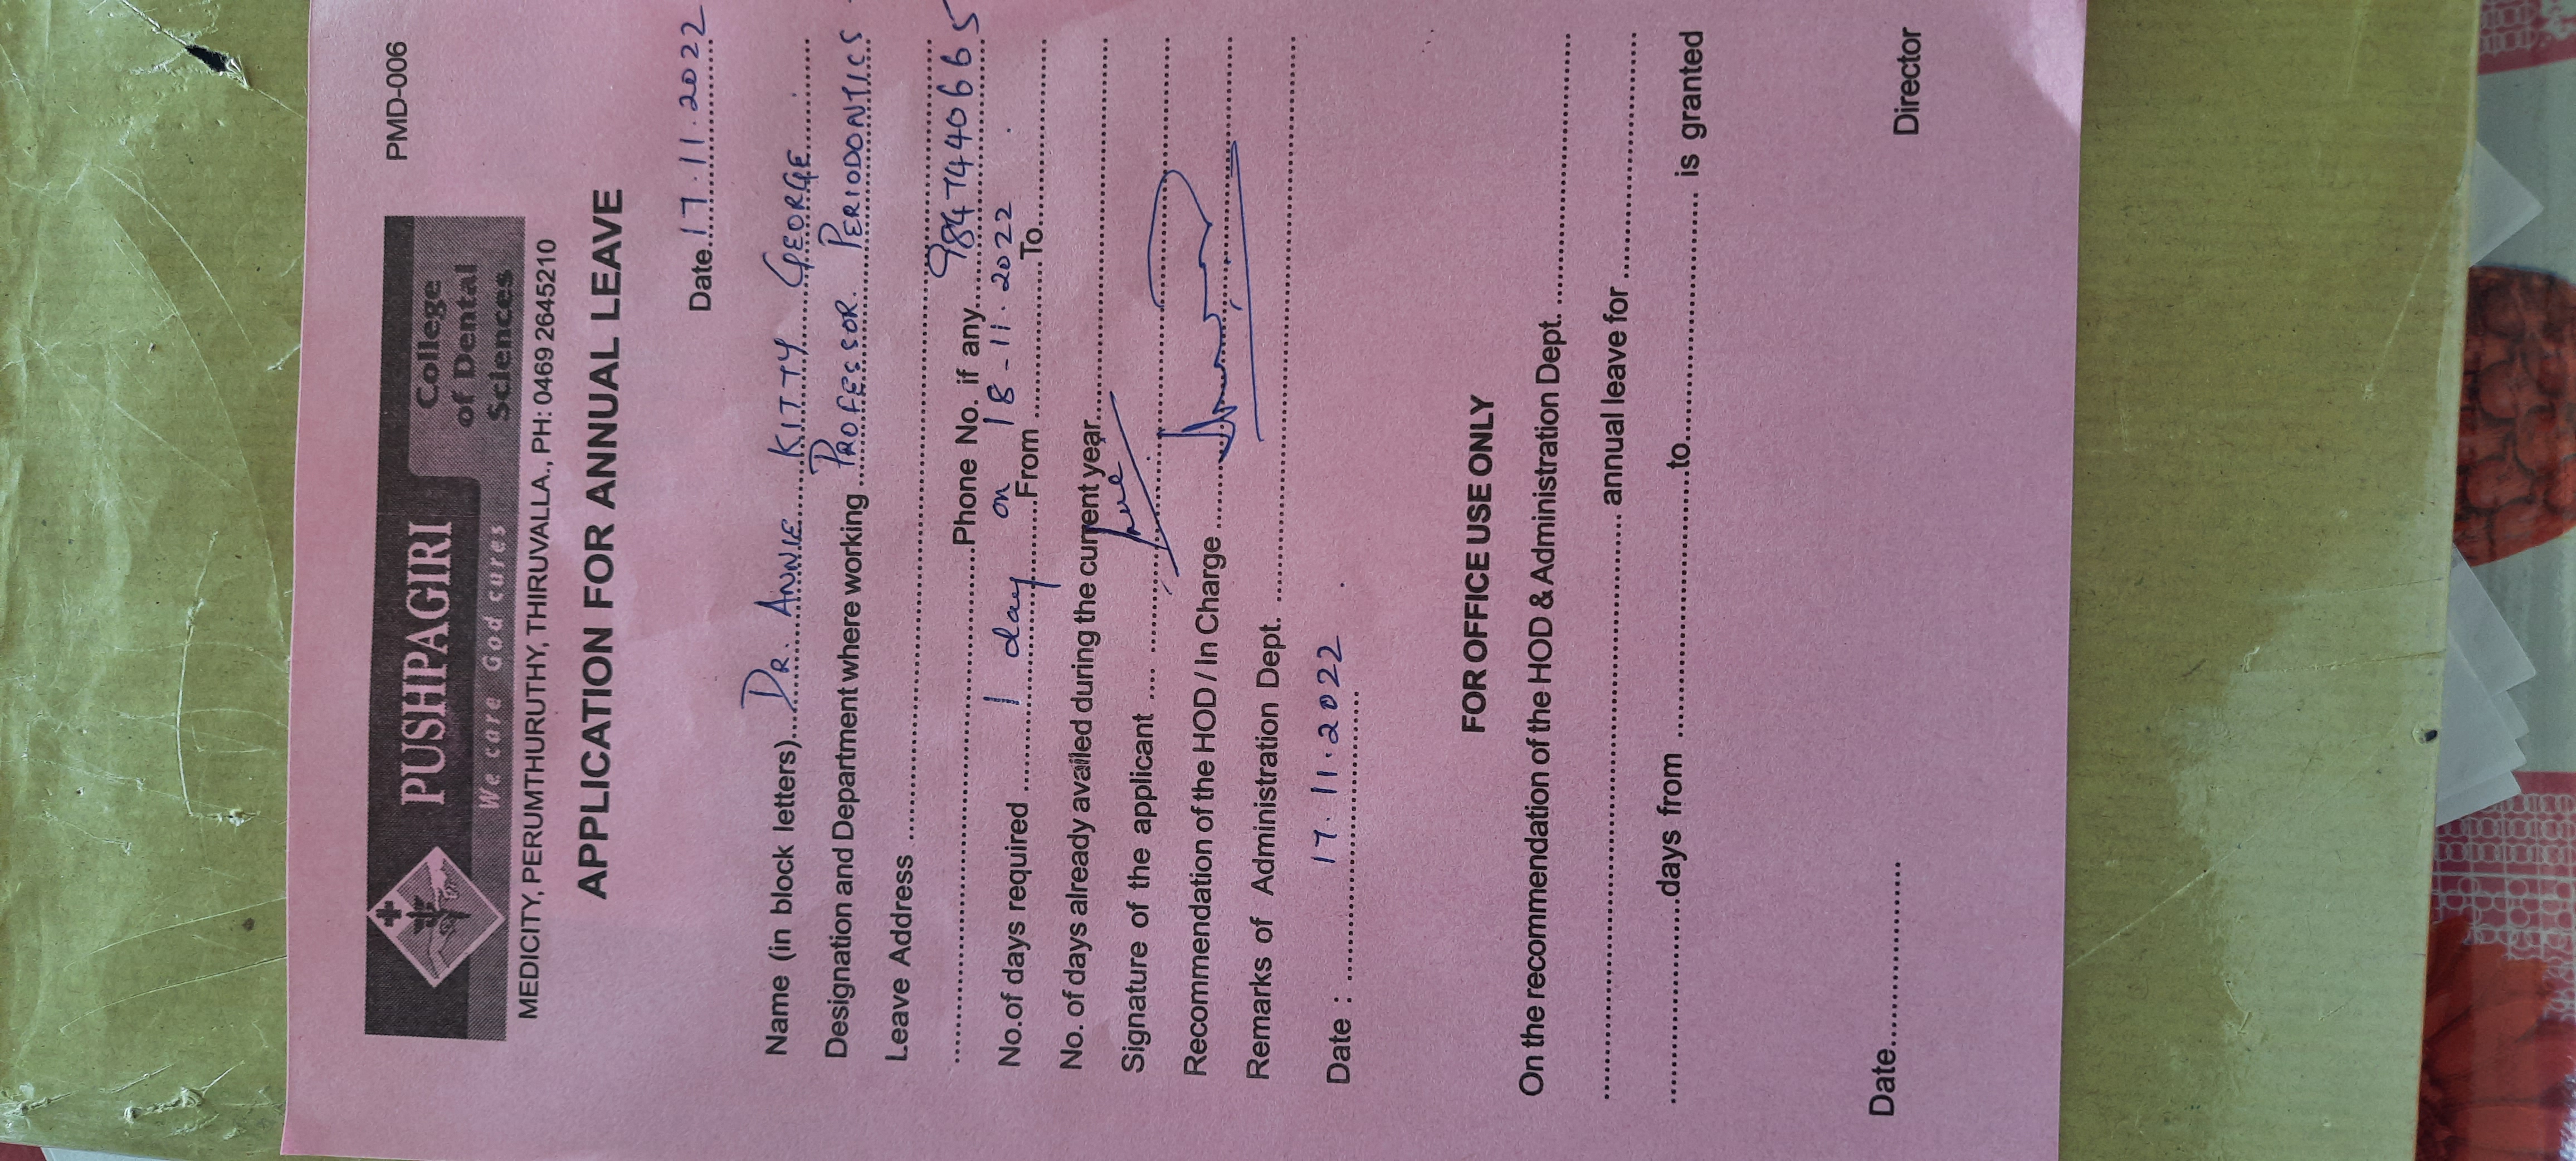 PMD-006
PUSHPAGIRI
We care God cures
College
of Dental
Sciences
MEDICITY, PERUMTHURUTHY, THIRUVALLA., PH: 0469 2645210
APPLICATION FOR ANNUAL LEAVE
Date 17.11.2022
Name (in block letters) DR. ANNIE KITTY GEORGE
Designation and Department where working PROFESSOR. PERIODONTICS
Leave Address
Phone No. if any 9847440665
No.of days required 1 day on From 18-11.2022 To
No. of days already availed during the current year
Signature of the applicant
Recommendation of the HOD / In Charge
Remarks of Administration Dept.
Date : 17.11.2022
FOR OFFICE USE ONLY
On the recommendation of the HOD & Administration Dept.
annual leave for
days from to is granted
Date
Director